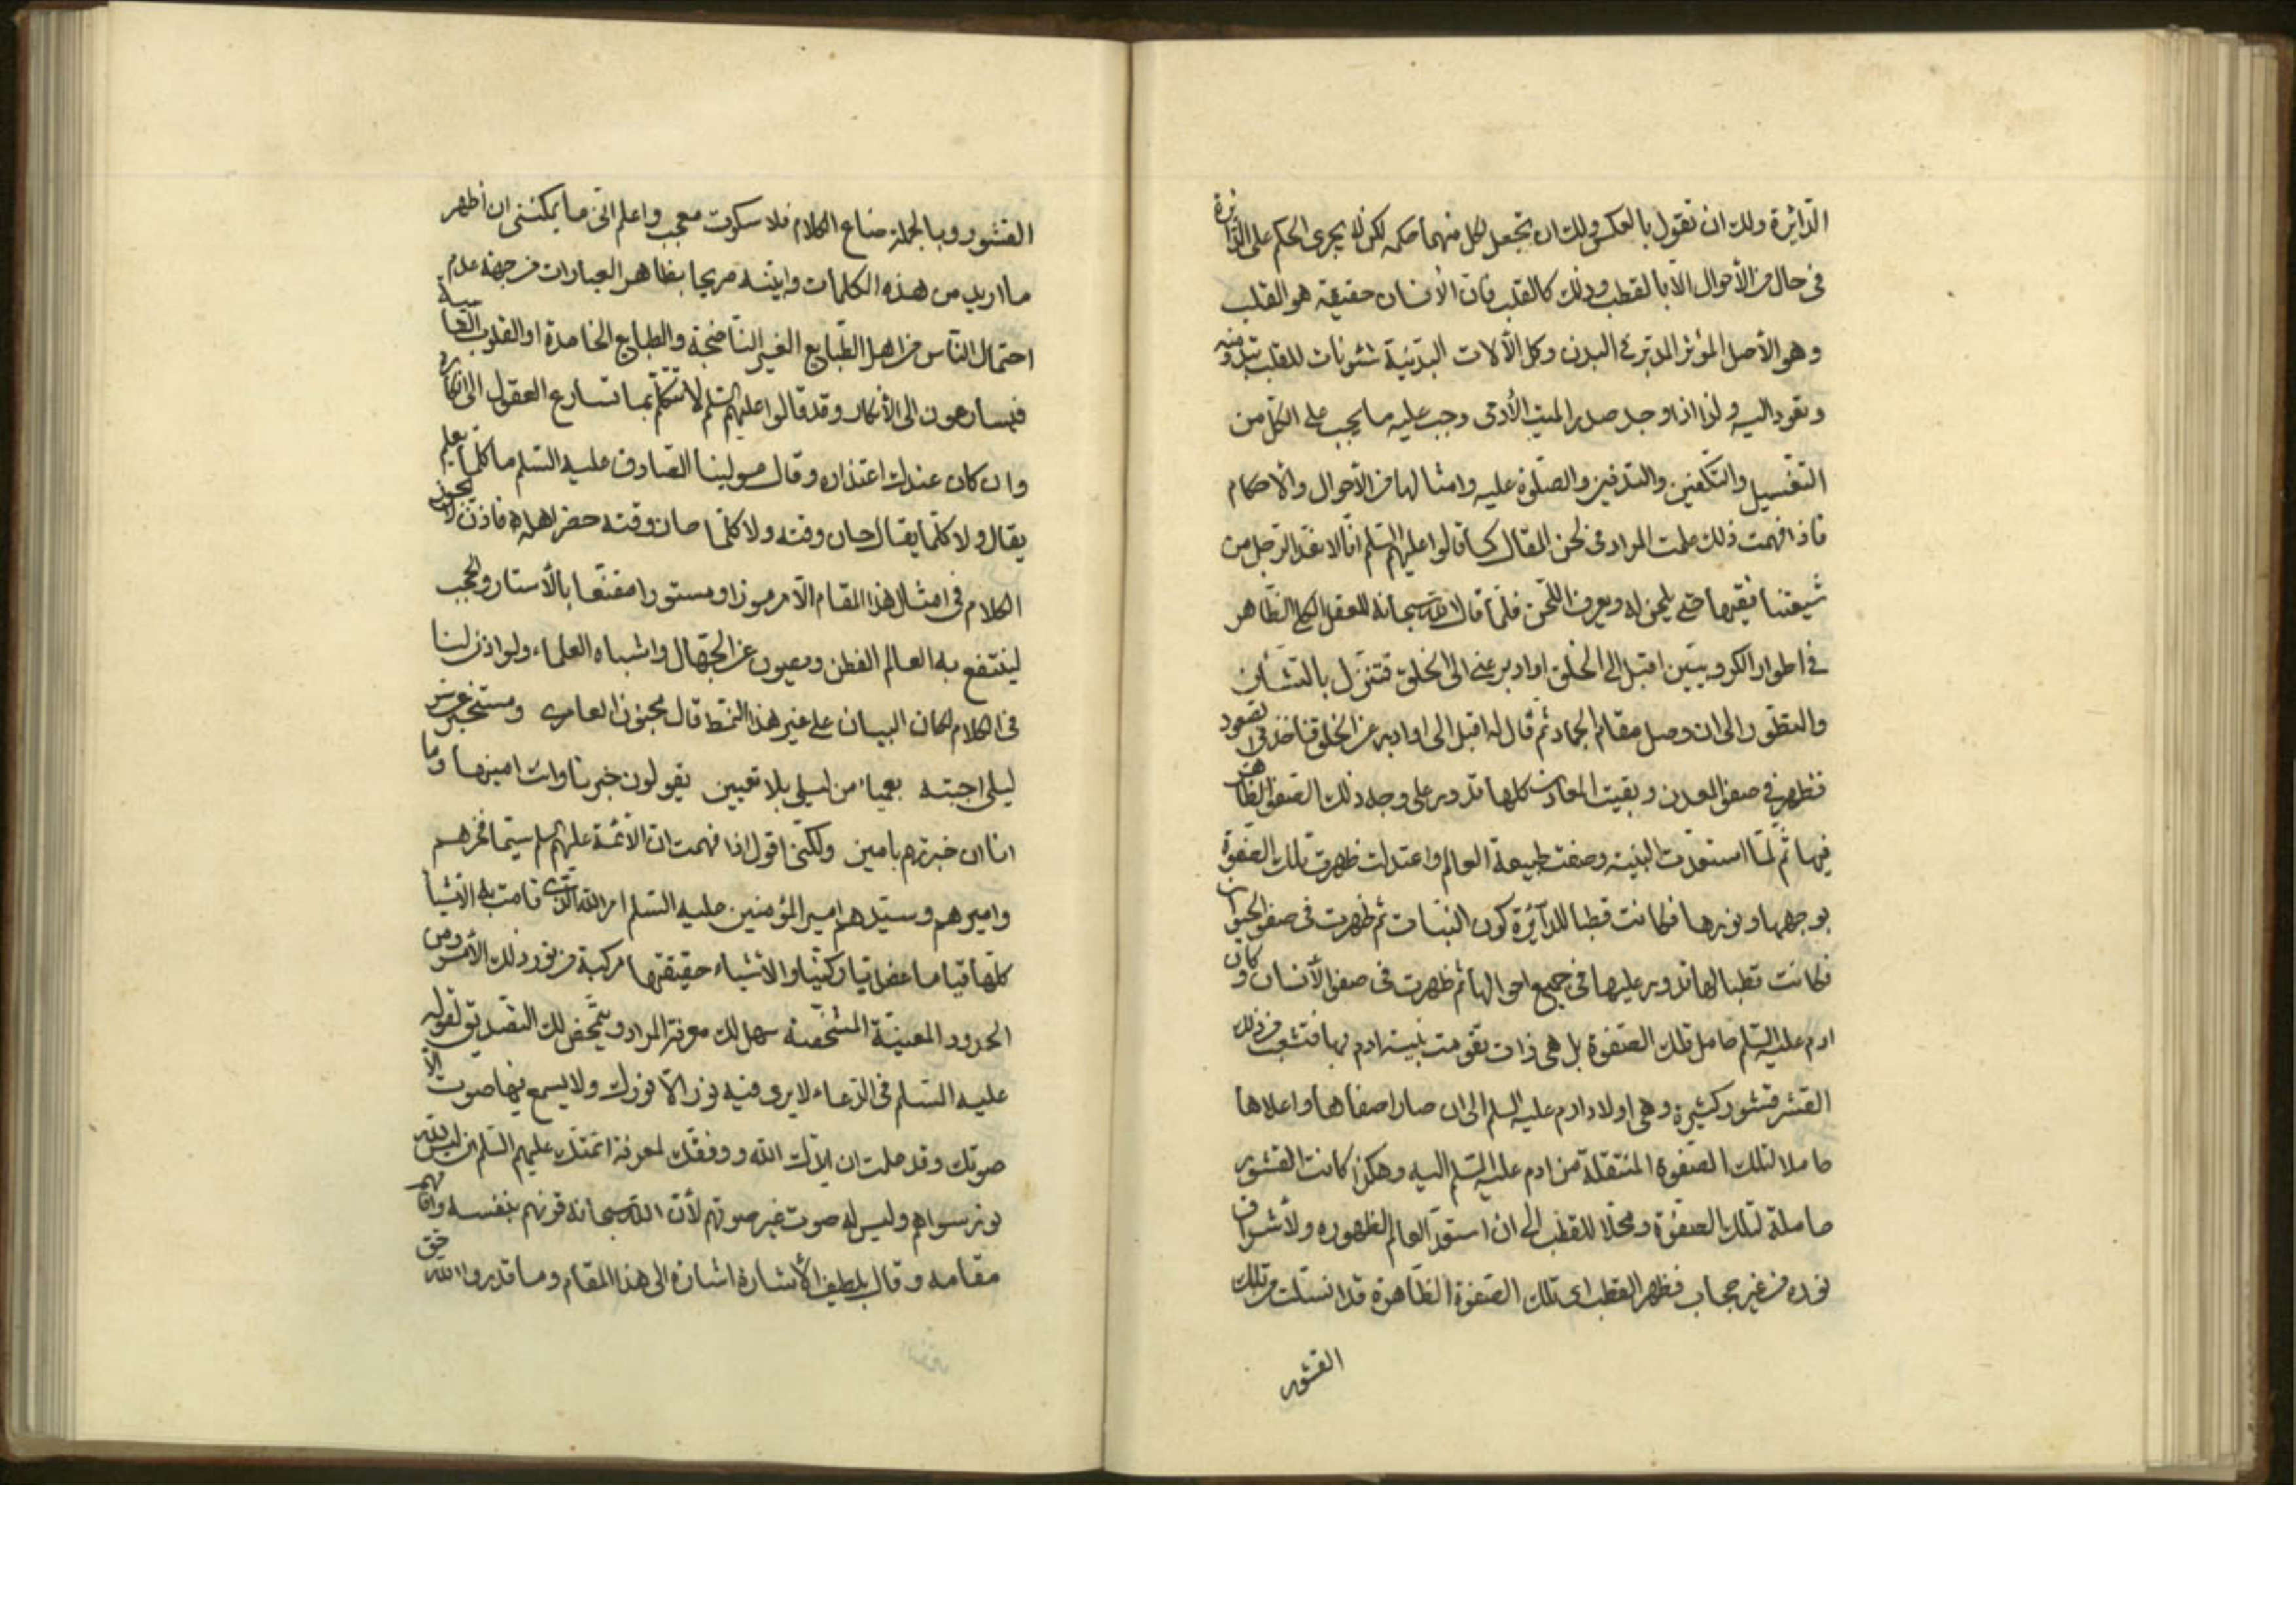 الدائرة ولك ان تقول بالعكس ولك ان تجعل لكل منهما حكمه لكن لا يجرى الحكم على الدائرة
فى حال من الأحوال الا بالقطب وذلك كالقلب فان الأنسان حقيقة هو القلب
وهو الأصل المؤثر المدبر فى البدن وكل الألات البدنية شئونات للقلب تبدو منه
وتعود اليه ولذا اذا وجد صدر الميت الأدمى وجب عليه ما يجب على الكل من
التغسيل والتكفين والتدفين والصلوة عليه وامثالها من الأحوال والأحكام
فاذا فهمت ذلك علمت المراد فى لحن المقال كما قالوا عليهم السلم انا لا نعد الرجل من
شيعتنا فقيها حتى يلحن له ويعرف اللحن فلما قال الله سبحانه للعقل الكلى الظاهر
فى اطوار الكروبيين اقبل الى الخلق او ادبر عنى الى الخلق فتنزل بالتشأن
والتطور الى ان وصل مقام الجماد ثم قال له اقبل الى او ادبر عن الخلق فاخذ فى الصعود
فظهر فى صفو المعدن وبقيت المعادن كلها تدور على وجه ذلك الصفو الظاهر
فيها ثم لما استعدت البنية وصفت طبيعة العالم واعتدلت ظهرت تلك الصفوة
بوجهها ونورها فكانت قطبا للدآئرة كون النبات ثم ظهرت فى صفو الحيوان
فكانت قطبا لها تدور عليها فى جميع احوالها ثم ظهرت فى صفو الأنسان وكان
ادم عليه السلم حامل تلك الصفوة بل هى ذات تقومت بنية ادم بها فتشعب من ذلك
القشر قشور كثيرة وهى اولاد ادم عليه السلم الى ان صار اصفاها واعلاها
حاملا لتلك الصفوة المنتقلة من ادم عليه السلم اليه وهكذا كانت القشور
حاملة لتلك الصفوة ومحلا للقطب الى ان استعد العالم لظهوره ولأشراق
نوره من غير حجاب فظهر القطب اى تلك الصفوة الظاهرة قد انسلت من تلك
القشور
القشور وبالجملة ضاع الكلام فلا سكوت معجب واعلم انى ما يمكننى ان أظهر
ما اريد من هذه الكلمات وابينه صريحا بظاهر العبارات من جهة عدم
احتمال الناس من اهل الطبايع الغير الناضجة والطبايع الخامدة او القلوب القاسية
فيسارعون الى الأنكار وقد قالوا عليهم السلم لا تتكلم بما تسارع العقول الى انكاره
وان كان عندك اعتذاره وقال مولينا الصادق عليه السلم ما كلما يعلم
يقال ولا كلما يقال حان وقته ولا كلما حان وقته حضر اهله فاذن لا يجوز
الكلام فى امثال هذا المقام الا مرموزا ومستورا مقنعا بالأستار والحجب
لينتفع به العالم الفطن ويصون عن الجهال واشباه العلماء ولو اذن لنا
فى الكلام لكان البيان على غير هذا النمط قال مجنون العامرى ومستخبر عن سر
ليلى اجبته بعمياء من ليلى بلا تعيين يقولون خبرنا وانت امينها وما
انا ان خبرتهم بامين ولكنى اقول اذا فهمت ان الأئمة عليهم السلم سيما فخرهم
واميرهم وسيدهم امير المؤمنين عليه السلم امر الله الذى قامت به الأشيآ
كلها قياما عضديا وركنيا والأشياء حقيقتها مركبة من نور ذلك الأمر ومن
الحدود المعينة المشخصة سهل لك معرفة المراد ويتمحض لك التصديق لقوله
عليه السلم فى الدعاء لا يرى فيه نور الا نورك ولا يسمع فيها صوت الا
صوتك وقد علمت ان ايدك الله ووفقك لمعرفة ائمتك عليهم السلم ان ليس لله
نور سواهم وليس له صوت غير صوتهم لأن الله سبحانه قرنهم بنفسه واقامهم
مقامه وقال بلطيف الأشارة اشارة الى هذا المقام وما قدروا الله حق